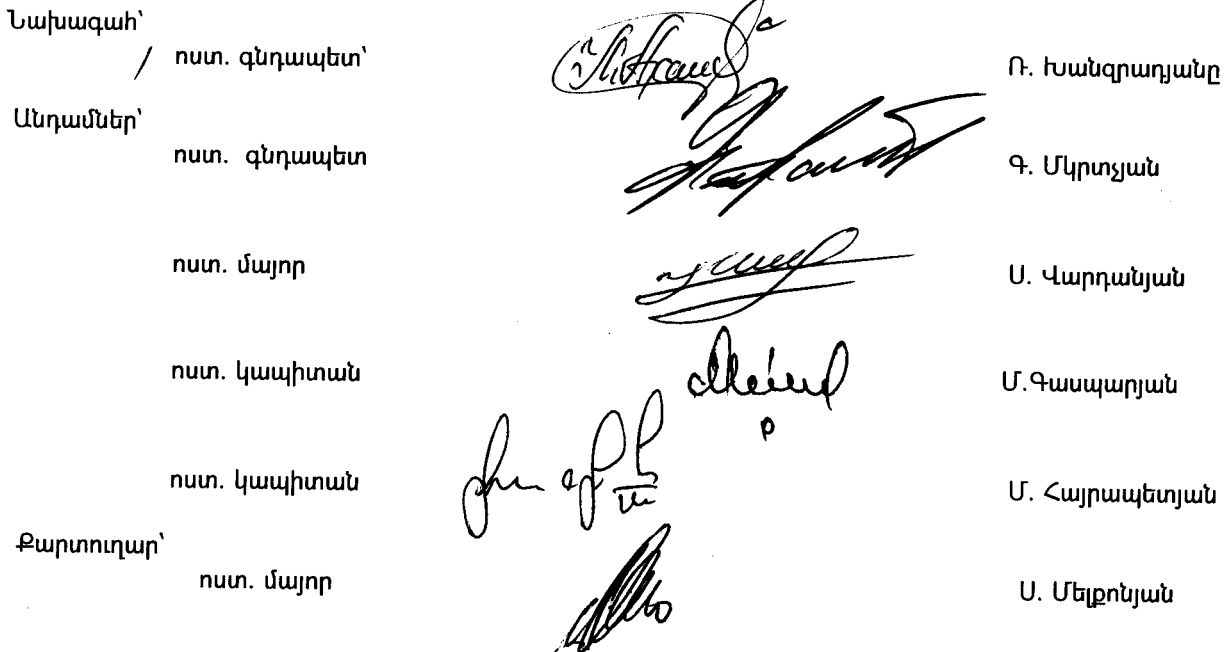 Նախագահ՝
/ ոստ. գնդապետ՝ Ռ. Խանզրադյանը
Անդամներ՝
ոստ. գնդապետ Գ. Մկրտչյան
ոստ. մայոր Ս. Վարդանյան
ոստ. կապիտան Մ.Գասպարյան
ոստ. կապիտան Մ. Հայրապետյան
Քարտուղար՝
ոստ. մայոր Ս. Մելքոնյան